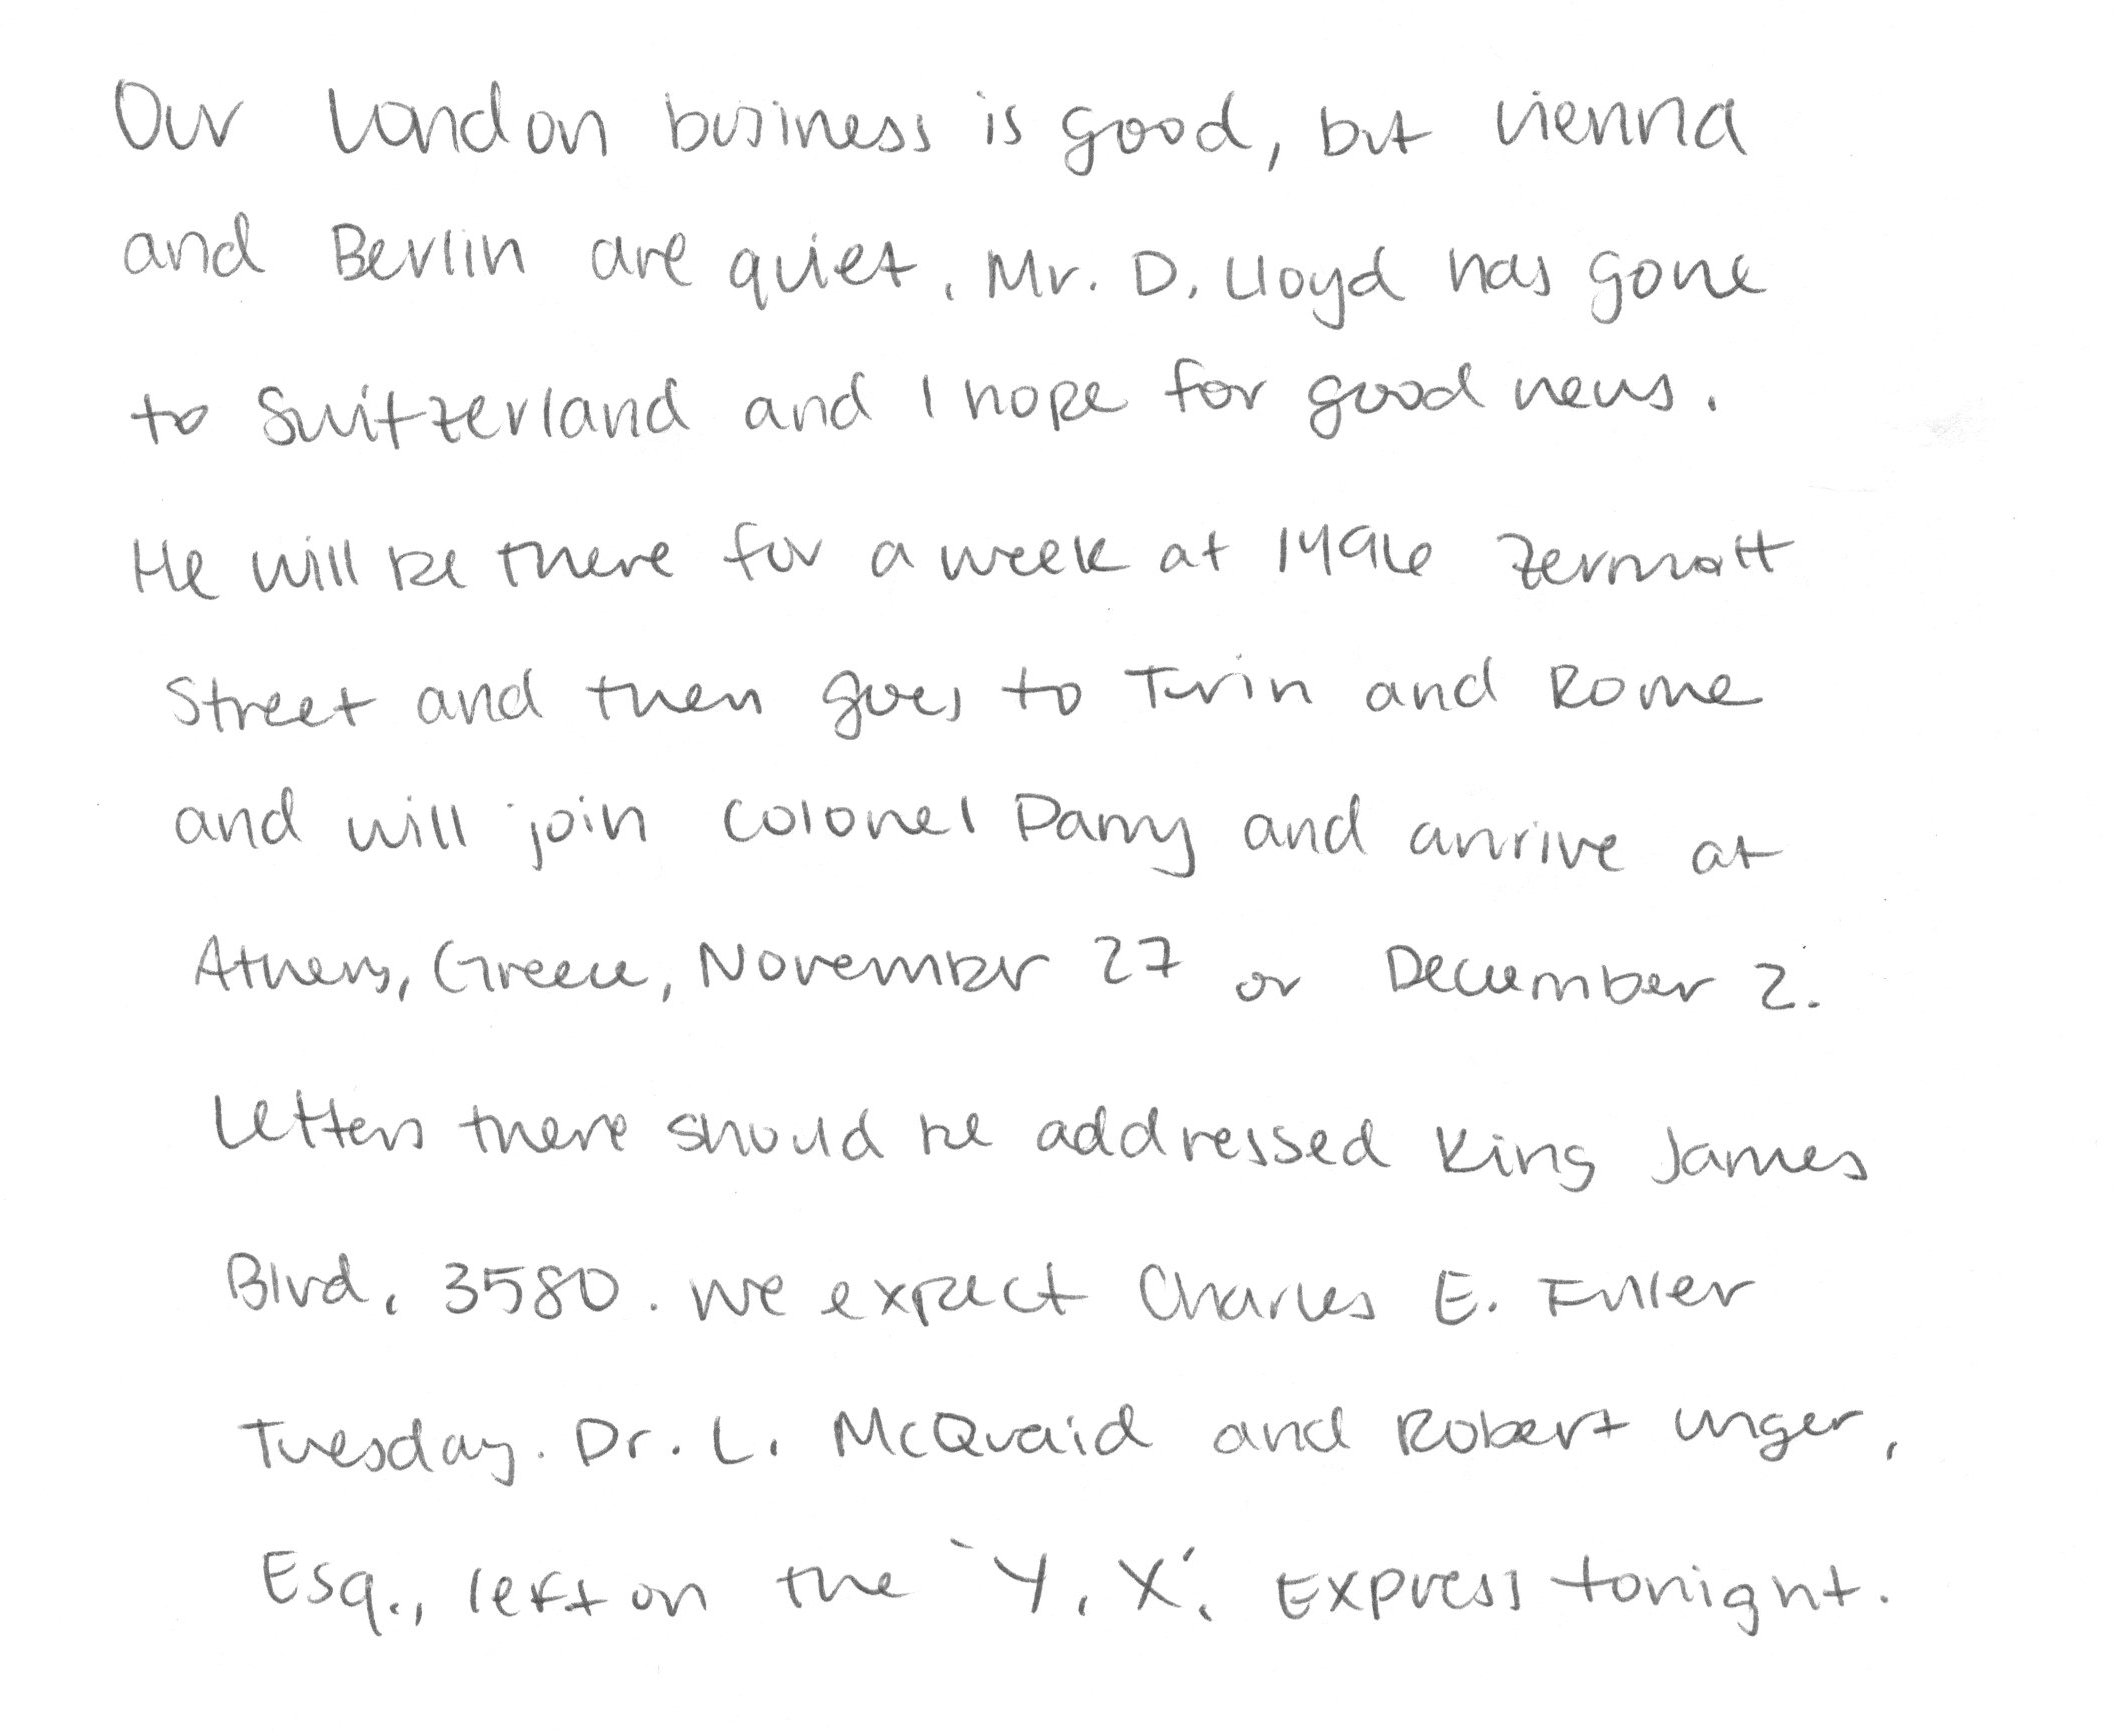 Our London business is good, but Vienna
and Berlin are quiet. Mr. D. Lloyd has gone
to Switzerland and I hope for good news.
He will be there for a week at 1496 Zermott
Street and then goes to Turin and Rome
and will join Colonel Parry and arrive at
Athens, Greece, November 27 or December 2.
Letters there should be addressed King James
Blvd. 3580. We expect Charles E. Fuller
Tuesday. Dr. L. McQuaid and Robert Unger,
Esq., left on the 'Y. X.' Express tonight.